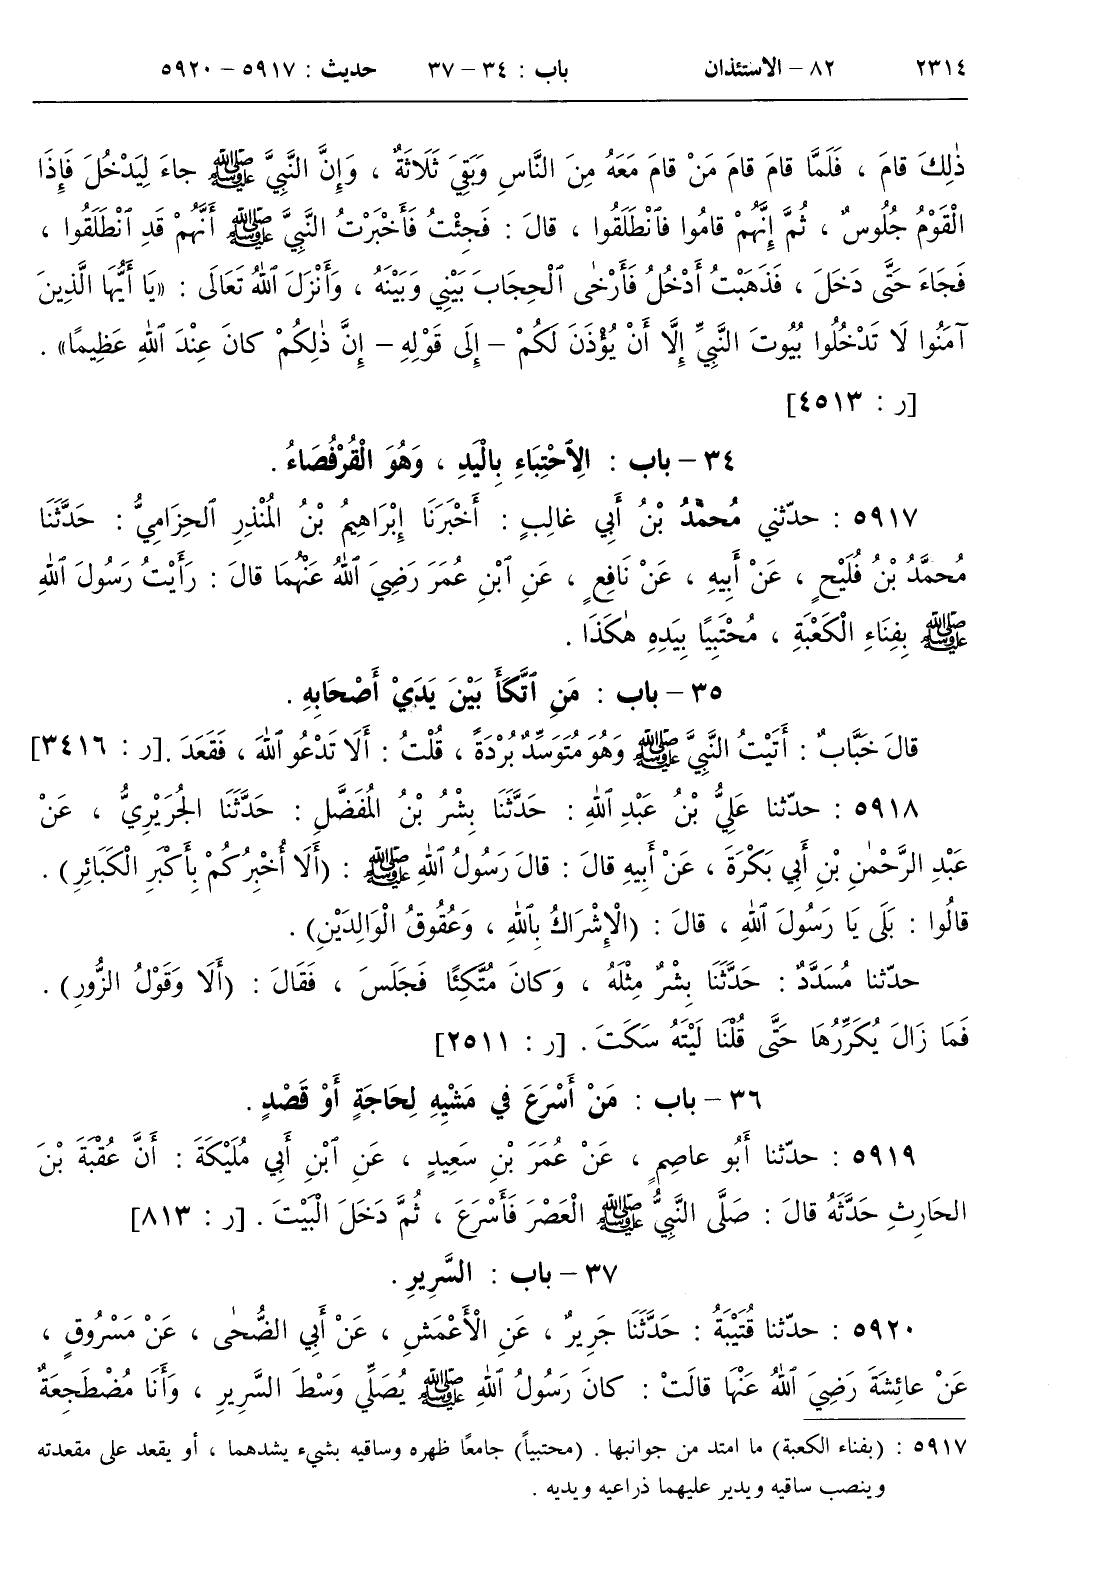 ٢٣١٤ ٨٢ – الاستئذان باب : ٣٤ – ٣٧ حديث : ٥٩١٧ – ٥٩٢٠
ذٰلِكَ قامَ ، فَلَمَّا قامَ قامَ مَنْ قامَ مَعَهُ مِنَ النَّاسِ وَبَقِيَ ثَلَاثَةٌ ، وَإِنَّ النَّبِيَّ ﷺ جاءَ لِيَدْخُلَ فَإِذَا
الْقَوْمُ جُلُوسٌ ، ثُمَّ إِنَّهُمْ قامُوا فَٱنْطَلَقُوا ، قالَ : فَجِئْتُ فَأَخْبَرْتُ النَّبِيَّ ﷺ أَنَّهُمْ قَدِ ٱنْطَلَقُوا ،
فَجَاءَ حَتَّى دَخَلَ ، فَذَهَبْتُ أَدْخُلُ فَأَرْخٰى ٱلْحِجَابَ بَيْنِي وَبَيْنَهُ ، وَأَنْزَلَ ٱللهُ تَعَالَى : «يَا أَيُّهَا الَّذِينَ
آمَنُوا لَا تَدْخُلُوا بُيُوتَ النَّبِيِّ إِلَّا أَنْ يُؤْذَنَ لَكُمْ – إِلَى قَوْلِهِ – إِنَّ ذٰلِكُمْ كانَ عِنْدَ ٱللهِ عَظِيمًا» .
[ر : ٤٥١٣]
٣٤ – باب : الِٱحْتِبَاءِ بِالْيَدِ ، وَهُوَ الْقُرْفُصَاءُ .
٥٩١٧ : حدّثني مُحمَّدُ بْنُ أَبِي غالِبٍ : أَخْبَرَنَا إِبْرَاهِيمُ بْنُ المُنْذِرِ ٱلحِزَامِيُّ : حَدَّثَنَا
مُحمَّدُ بْنُ فُلَيْحٍ ، عَنْ أَبِيهِ ، عَنْ نَافِعٍ ، عَنِ ٱبْنِ عُمَرَ رَضِيَ ٱللهُ عَنْهُمَا قالَ : رَأَيْتُ رَسُولَ ٱللهِ
ﷺ بِفِنَاءِ الْكَعْبَةِ ، مُحْتَبِيًا بِيَدِهِ هٰكَذَا .
٣٥ – باب : مَنِ ٱتَّكَأَ بَيْنَ يَدَيْ أَصْحَابِهِ .
قالَ خَبَّابٌ : أَتَيْتُ النَّبِيَّ ﷺ وَهُوَ مُتَوَسِّدٌ بُرْدَةً ، قُلْتُ : أَلَا تَدْعُو ٱللهَ ، فَقَعَدَ . [ر : ٣٤١٦]
٥٩١٨ : حدّثنا عَلِيُّ بْنُ عَبْدِ ٱللهِ : حَدَّثَنَا بِشْرُ بْنُ المُفَضَّلِ : حَدَّثَنَا الجُرَيْرِيُّ ، عَنْ
عَبْدِ الرَّحْمٰنِ بْنِ أَبِي بَكْرَةَ ، عَنْ أَبِيهِ قالَ : قالَ رَسُولُ ٱللهِ ﷺ : (أَلَا أُخْبِرُكُمْ بِأَكْبَرِ الْكَبَائِرِ) .
قالُوا : بَلَى يَا رَسُولَ ٱللهِ ، قالَ : (الْإِشْرَاكُ بِٱللهِ ، وَعُقُوقُ الْوَالِدَيْنِ) .
حدّثنا مُسَدَّدٌ : حَدَّثَنَا بِشْرٌ مِثْلَهُ ، وَكانَ مُتَّكِئًا فَجَلَسَ ، فَقَالَ : (أَلَا وَقَوْلُ الزُّورِ) .
فَمَا زَالَ يُكَرِّرُهَا حَتَّى قُلْنَا لَيْتَهُ سَكَتَ . [ر : ٢٥١١]
٣٦ – باب : مَنْ أَسْرَعَ فِي مَشْيِهِ لِحَاجَةٍ أَوْ قَصْدٍ .
٥٩١٩ : حدّثنا أَبُو عاصِمٍ ، عَنْ عُمَرَ بْنِ سَعِيدٍ ، عَنِ ٱبْنِ أَبِي مُلَيْكَةَ : أَنَّ عُقْبَةَ بْنَ
الحَارِثِ حَدَّثَهُ قالَ : صَلَّى النَّبِيُّ ﷺ الْعَصْرَ فَأَسْرَعَ ، ثُمَّ دَخَلَ الْبَيْتَ . [ر : ٨١٣]
٣٧ – باب : السَّرِيرِ .
٥٩٢٠ : حدّثنا قُتَيْبَةُ : حَدَّثَنَا جَرِيرٌ ، عَنِ الْأَعْمَشِ ، عَنْ أَبِي الضُّحٰى ، عَنْ مَسْرُوقٍ ،
عَنْ عائِشَةَ رَضِيَ ٱللهُ عَنْهَا قالَتْ : كانَ رَسُولُ ٱللهِ ﷺ يُصَلِّي وَسْطَ السَّرِيرِ ، وَأَنَا مُضْطَجِعَةٌ
٥٩١٧ : (بفناء الكعبة) ما امتد من جوانبها . (محتبياً) جامعًا ظهره وساقيه بشيء يشدهما ، أو يقعد على مقعدته
وينصب ساقيه ويدير عليهما ذراعيه ويديه .